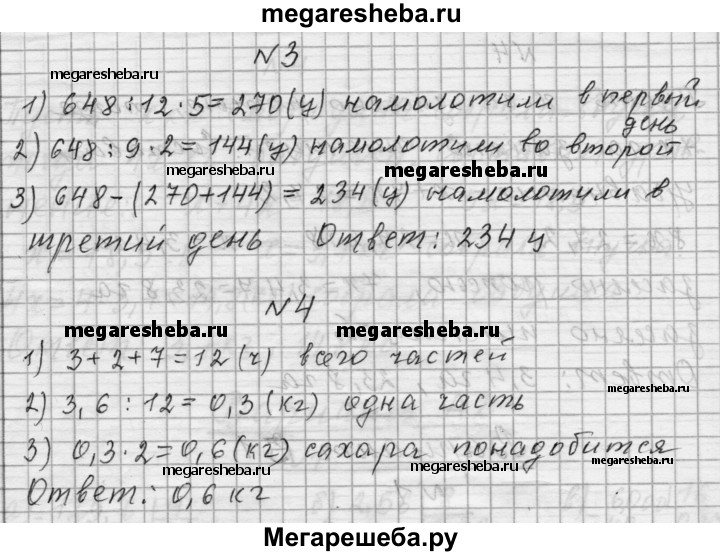 megaresheba.ru
N3
megaresheba.ru
megaresheba.ru
1) 648:12·5=270(ц) намолотили в первый
день
2) 648:9·2=144(ц) намолотили во второй
megaresheba.ru
megaresheba.ru
3) 648-(270+144)=234(ц) намолотили в
третий день Ответ: 234 ц
N4
megaresheba.ru
megaresheba.ru
1) 3+2+7=12(ч) всего частей
2) 3,6:12=0,3(кг) одна часть
3) 0,3·2=0,6(кг) сахара понадобится
megaresheba.ru
megaresheba.ru
megaresheba.ru
Ответ: 0,6 кг
megaresheba.ru
Мегарешеба.ру